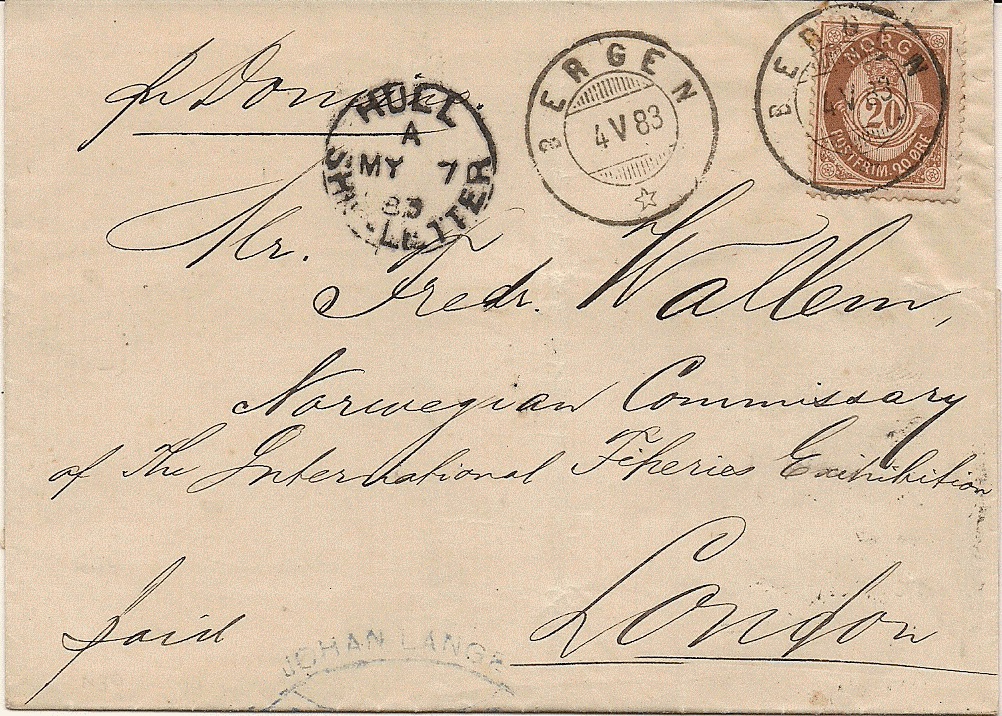 pr Domino.
HULL
A
MY 7
83
SHIP-LETTER
BERGEN
4 V 83
BERGEN
4 V 83
NORGE
20
POSTFRIM. 20 ØRE
Mr. Fredr. Wallem,
Norwegian Commissary
of the International Fiheries Exihibition
London
paid
JOHAN LANGE